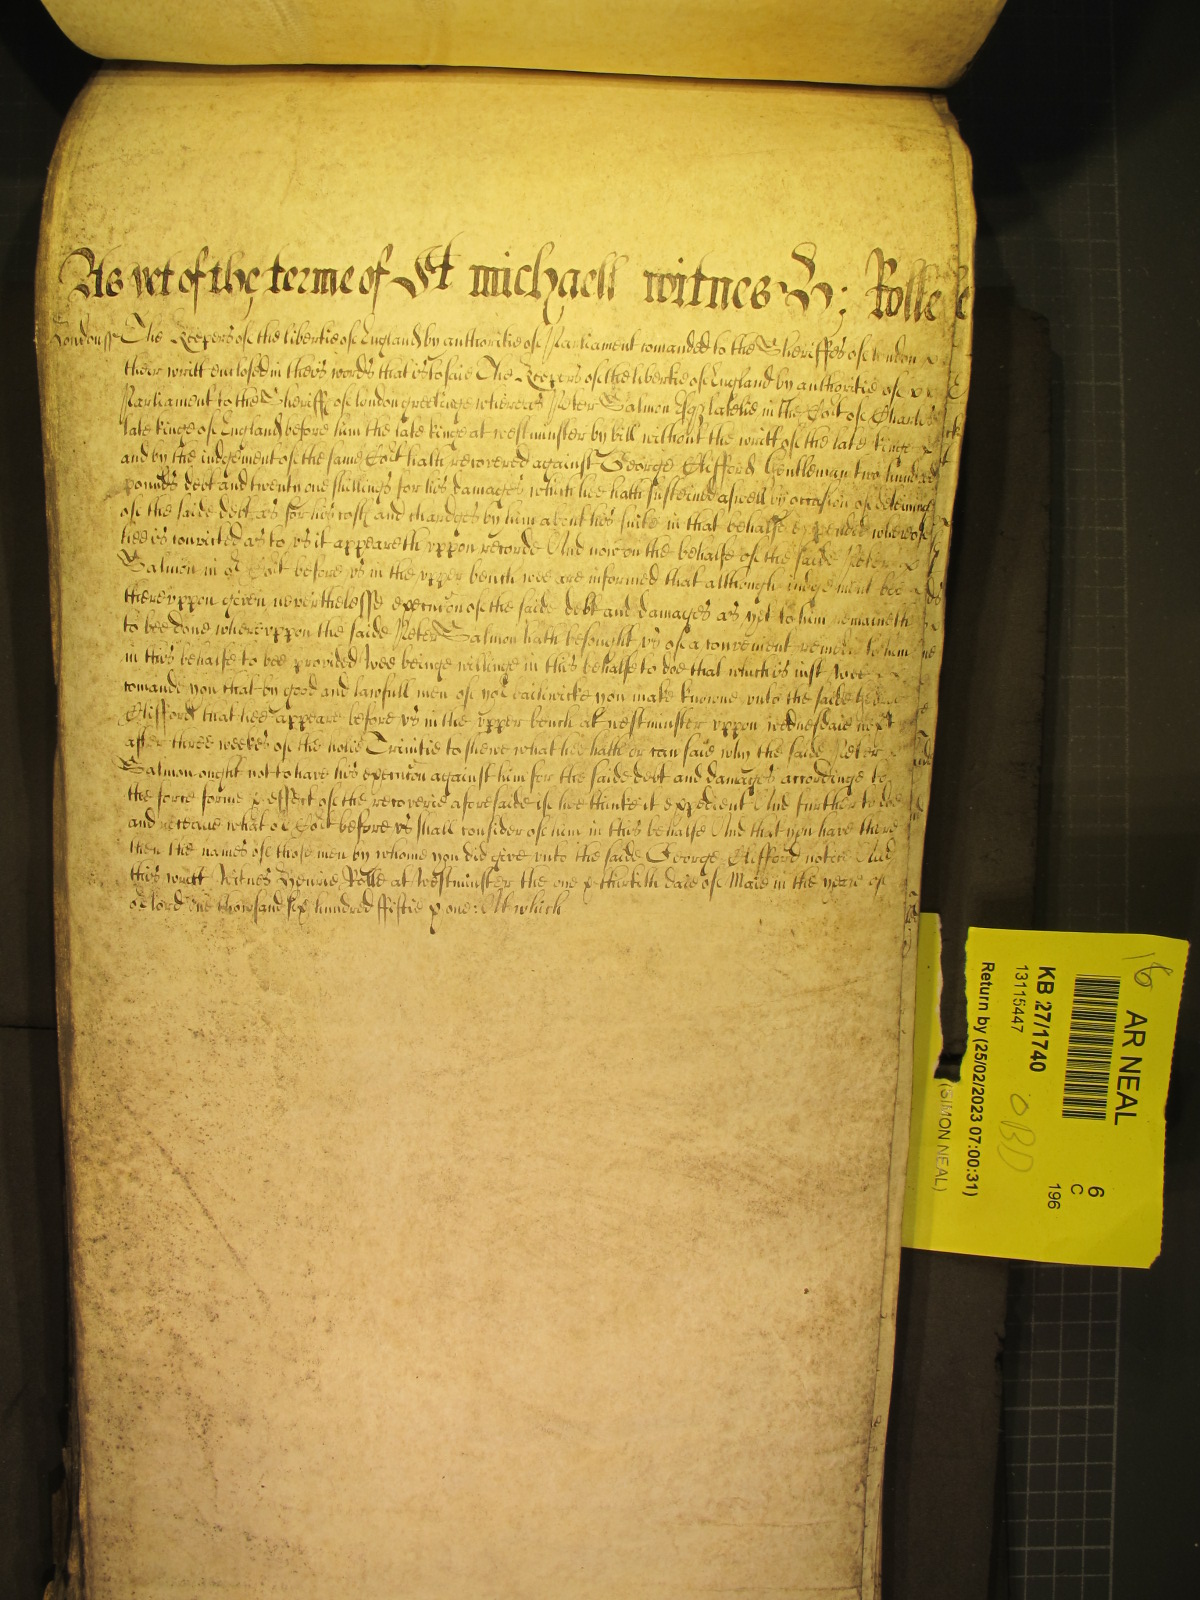 As yet of the terme of St Michaell witnes H: Rolle
London ss The Keepers of the libertie of England by authoritie of Parliament comanded to the Sheriffes of London
their writt enclosed in theis words that is to saie The Keepers of the libertie of England by authoritie of
Parliament to the Sheriffs of London greetinge whereas Peter Salmon Esqr latelie in the Co:rt of Charles
late kinge of England before him the late kinge at westminster by bill without the writt of the late kinge
and by the iudgement of the same Co:rt hath recovered against George Clifford Gentleman two hundred
pounds debt and twenty one shillings for his damages which hee hath susteined aswell by occasion of deteining
of the saide debt as for his costs and chardges by him about his suite in that behalfe expended whereof
hee is convicted as to vs it appeareth vppon recorde And now on the behalfe of the saide Peter
Salmon in o:r Co:rt before vs in the vpper bench wee are informed that although iudgement bee
therevppon given neverthelesse execucon of the saide debt and damages as yet to him remaineth
to bee done wherevppon the saide Peter Salmon hath besought vs of a convenient remedy to him
in this behalfe to bee provided Wee beinge willinge in this behalfe to doe that which is iust Wee
comande you that by good and lawfull men of yo:r bailiwicke you make knowne vnto the saide George
Clifford that hee appeare before vs in the vpper bench at westminster vppon wednesdaie next
after three weekes of the holie Trinitie to shewe what hee hath or can saie why the saide Peter
Salmon ought not to have his execucon against him for the saide debt and damages accordinge to
the force forme & effect of the recoverie aforesaide if hee thinke it expedient And further to doe
and receaue what o:r Co:rt before vs shall consider of him in this behalfe And that you have there
then the names of those men by whome you did give vnto the saide George Clifford notice And
this writt Witnes Henrie Rolle at Westminster the one & thirtith daie of Maie in the yeare of
o:r lord one thowsand six hundred ffiftie & one: At which
16
AR NEAL
6
C
196
KB 27/1740
13115447
OBD
Return by (25/02/2023 07:00:31)
(SIMON NEAL)